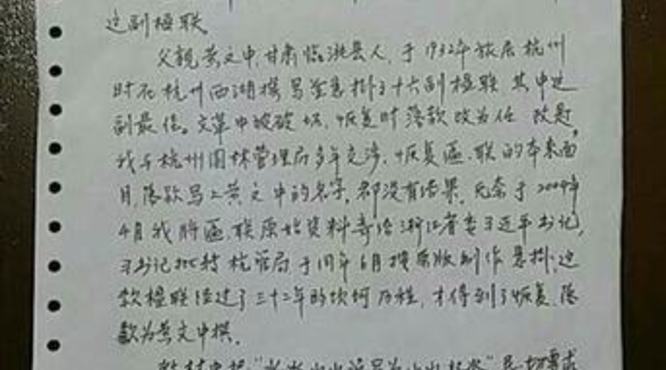 这副楹联
父亲黄文中,甘肃临洮县人,于1932年旅居杭州
时在杭州西湖撰写并悬挂了十六副楹联 其中这
副最佳。文革中被破坏,恢复时落款改为任 政是,
我与杭州园林管理局多年交涉,恢复匾、联的本来面
目,落款写上黄文中的名字,都没有结果。无奈于2004年
4月我将匾、联原始资料寄给浙江省委习近平书记,
习书记批转杭管局于同年6月按原版制作悬挂,这
款楹联经过了三十二年的坎坷历程,才得到了恢复,落
款为黄文中撰。